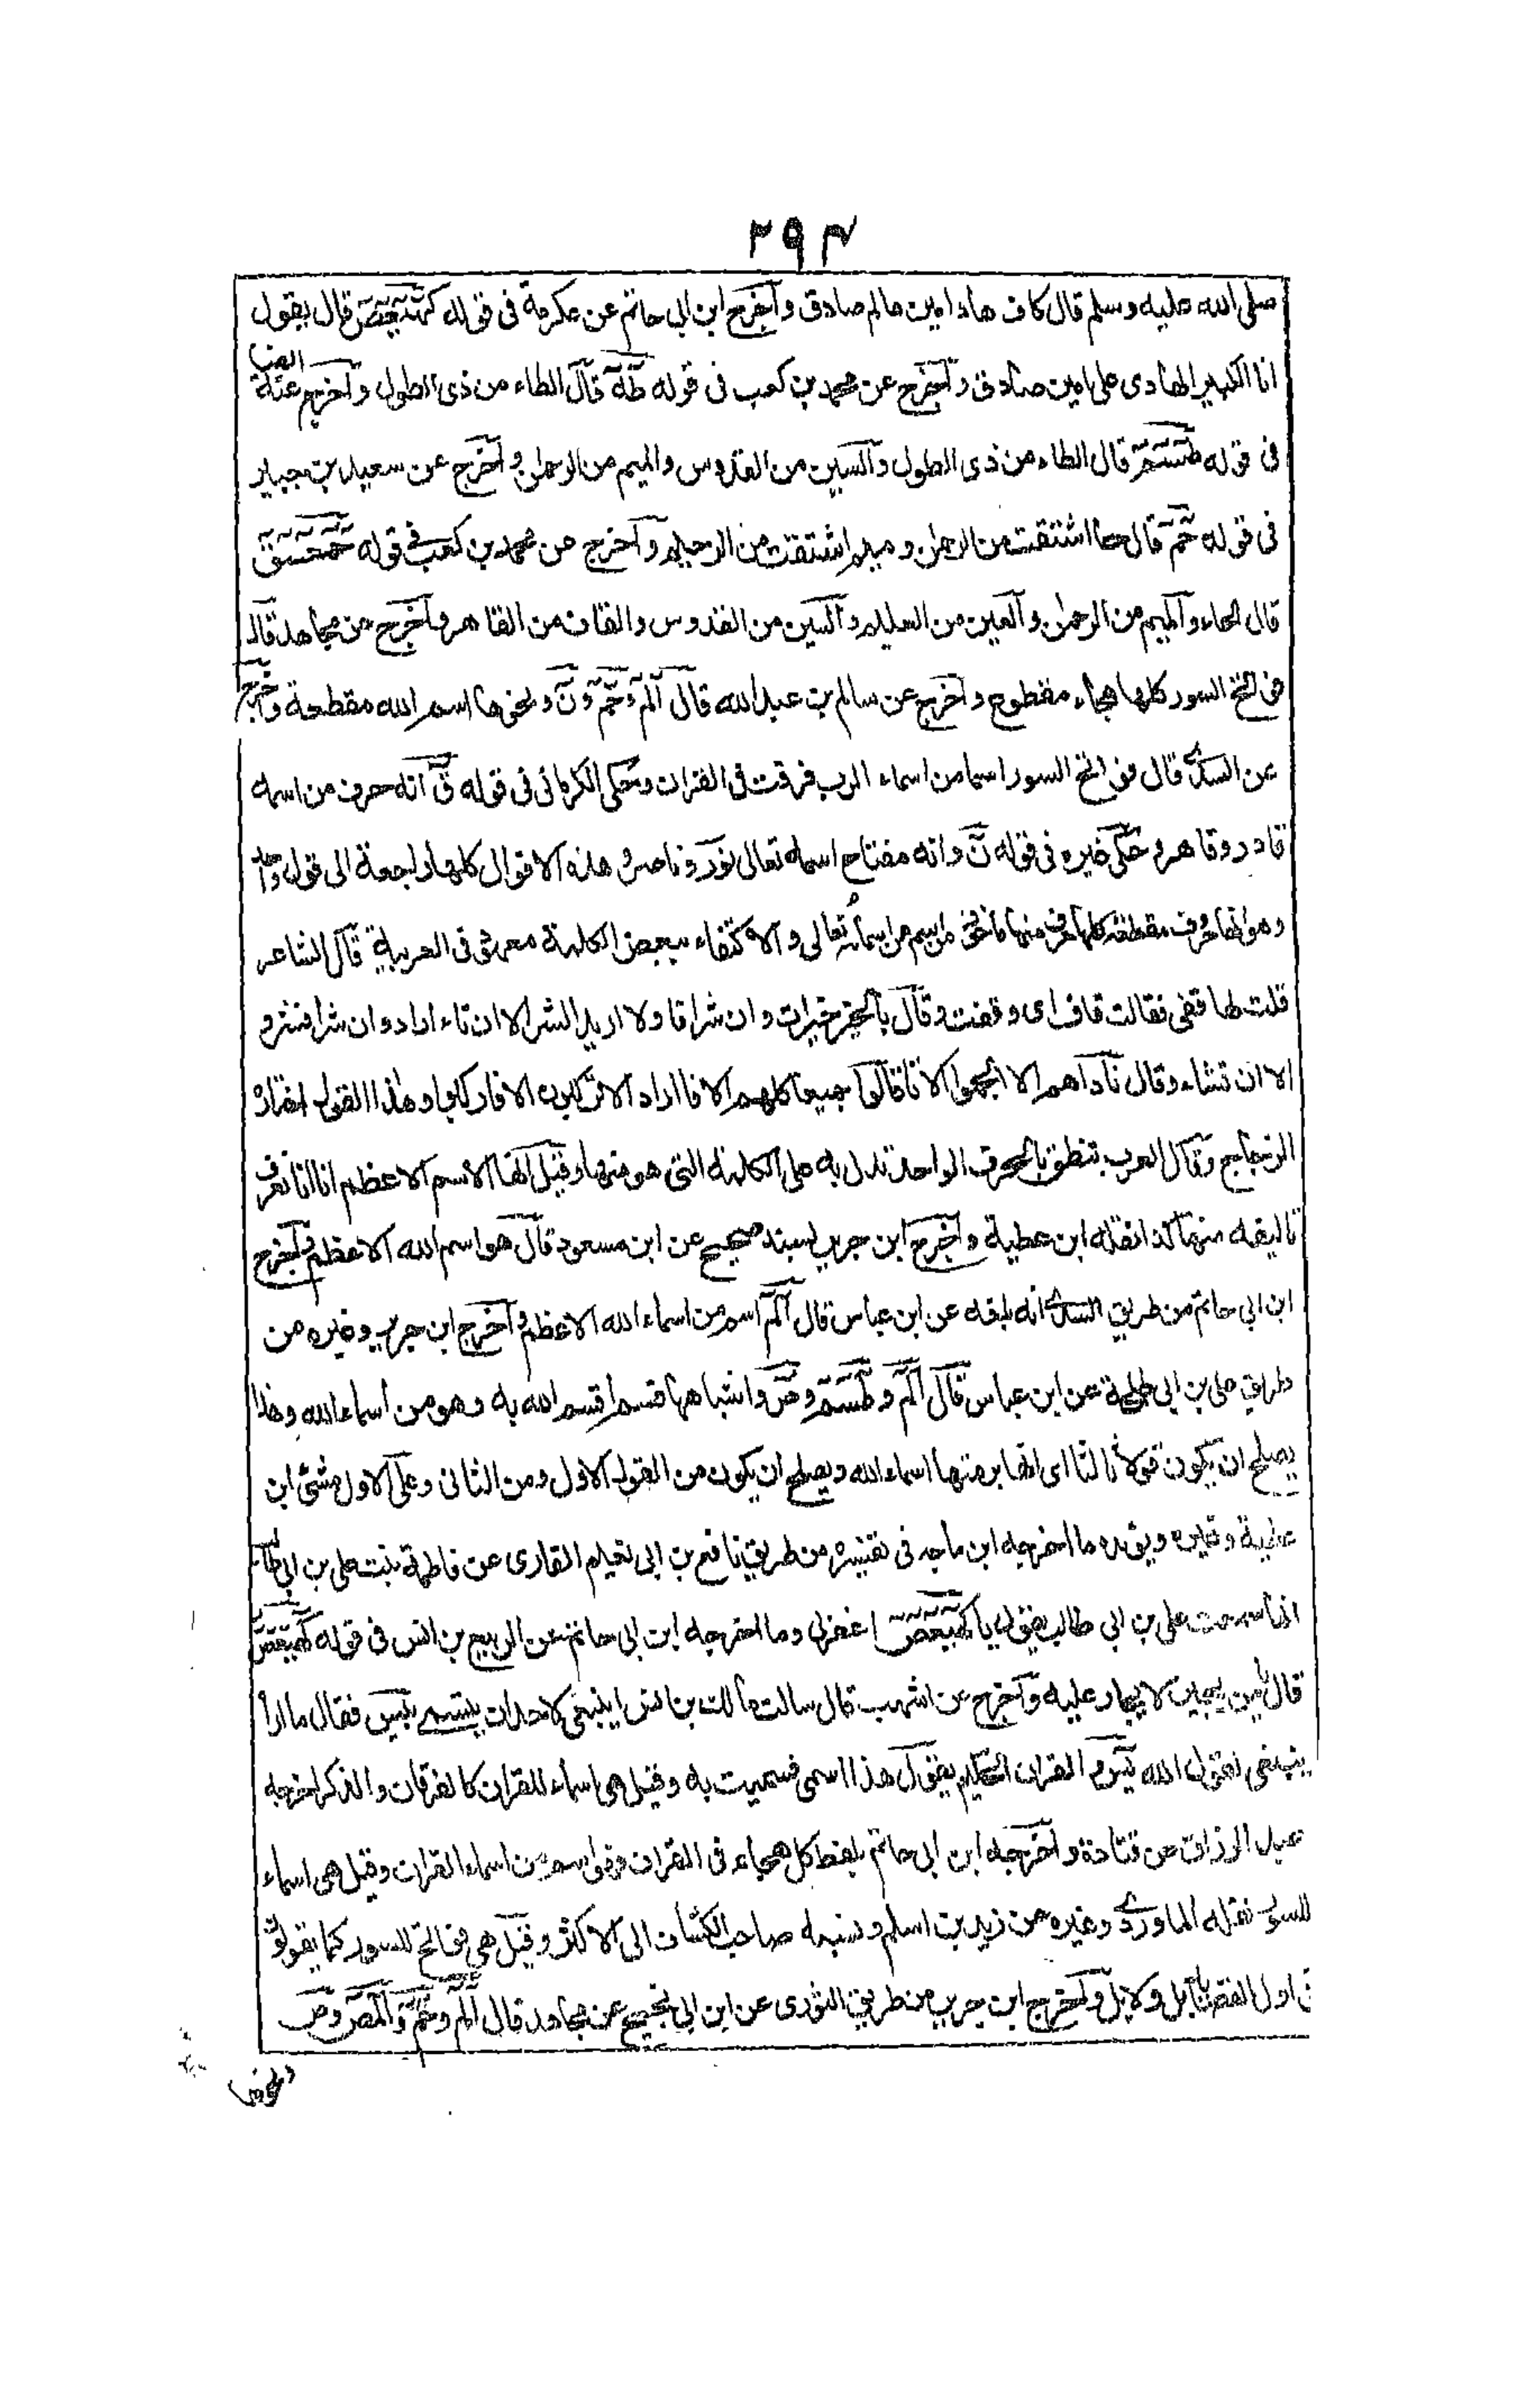 ٢٩٣
صلى الله عليه وسلم قال كاف هاد امين عالم صادق وآخرج ابن ابى حاتم عن عكرمة فى قوله كهيعص قال يقول
انا الكبير الهادى على امين صادق وآخرج عن محمد بن كعب فى قوله طه قال الطاء من ذى الطول وآخرج عنه
ايضا
فى قوله طسم قال الطاء من ذى الطول والسين من القدوس والميم من الرحمن وآخرج عن سعيد بن جبير
فى قوله حم قال حا اشتقت من الرحمن وميم اشتقت من الرحيم وآخرج عن محمد بن كعب فى قوله حمعسق
قال الحاء والميم من الرحمن والعين من العليم والسين من القدوس والقاف من القاهر وآخرج عن مجاهد قال
فواتح السور كلها هجاء مقطوع وآخرج عن سالم بن عبد الله قال الم وحم ون ونحوها اسم الله مقطعة وآخرج
عن السدى قال فواتح السور اسما من اسماء الرب فرقت فى القران وحكى الكرمانى فى قوله ق انه حرف من اسمه
قادر وقاهر وحكى غيره فى قوله ن وانه مفتاح اسمه تعالى نور وناصر وهذه الاقوال كلها راجعة الى قول واحد
وهو انها حروف مقطعة كلها حرف منها ماخوذ من اسم من اسمائه تعالى والاكتفاء ببعض الكلمة معهود فى العربية قال الشاعر
قلت لها قفى فقالت قاف اى وقفت وقال بالخير خيرات وان شرا فا ولا اريد الشر الا ان تاء اراد وان شرا فشر و
الا ان تشاء وقال ناداهم الا الجموا الا تا قالوا جميعا كلهم الا فا اراد الا تركبون الا فاركبوا وهذا القول اختاره
الزجاج وقال العرب تنطق بالحرف الواحد تدل به على الكلمة التى هو منها وقيل انها الاسم الاعظم الا انا لا نعرف
تاليفه منها كذا نقله ابن عطية وآخرج ابن جرير بسند صحيح عن ابن مسعود قال هو اسم الله الاعظم وآخرج
ابن ابى حاتم من طريق السدى انه بلغه عن ابن عباس قال الم اسم من اسماء الله الاعظم وآخرج ابن جرير وغيره من
طريق على بن ابى طلحة عن ابن عباس قال الم وطسم وص واشباهها قسم اقسم الله به وهو من أسماء الله وهذا
يصلح ان يكون قولا ثالثا اى انها برمتها اسماء الله ويصلح ان يكون من القول الاول ومن الثانى وعلى الاول مشى ابن
عطية وغيره ويؤيده ما اخرجه ابن ماجه فى تفسيره من طريق نافع بن ابى نعيم القارى عن فاطمة بنت على بن ابى طالب
انها سمعت على بن ابى طالب يقول يا كهيعص اغفرلى وما اخرجه ابن ابى حاتم عن الربيع بن انس فى قوله كهيعص
قال يا من يجير لا يجار عليه وآخرج عن اشهب قال سالت مالك بن انس اينبغى لاحد ان يتسمى بيس فقال ما اراه
ينبغى لقول الله يس والقران الحكيم يقول هذا اسمى تسميت به وقيل هى اسماء للقران كالفرقان والذكر اخرجه
عبد الرزاق عن قتادة وآخرجه ابن ابى حاتم بلفظ كل هجاء فى القران فهو اسم من اسماء القران وقيل هى اسماء
للسور نقله الماوردى وغيره عن زيد بن اسلم ونسبه صاحب الكشاف الى الاكثر وقيل هى فواتح للسور كما يقولون
فى اول القصائد بل ولا بل وآخرج ابن جرير من طريق الثورى عن ابن ابى نجيح عن مجاهد قال الم وحم والمص وص
ونحوها